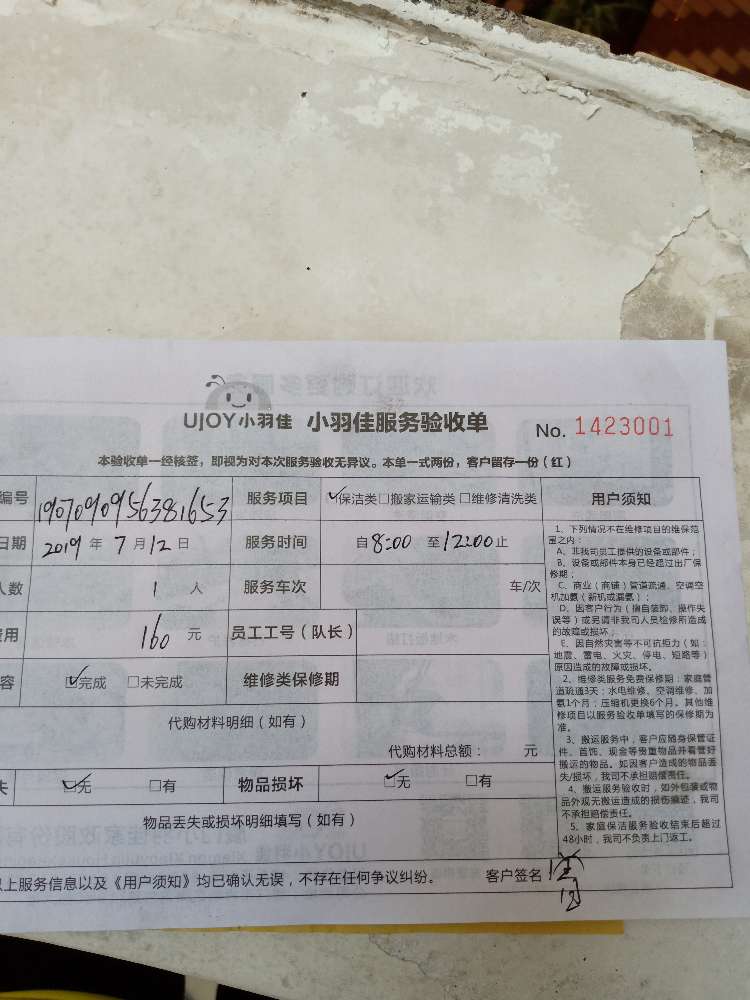 UJOY小羽佳 小羽佳服务验收单 No. 1423001
本验收单一经核签，即视为对本次服务验收无异议。本单一式两份，客户留存一份（红）
编号 1907090956381653 服务项目 ☑保洁类□搬家运输类□维修清洗类 用户须知
日期 2019 年 7 月 12 日 服务时间 自 8:00 至 12:00 止
人数 1 人 服务车次 车/次
费用 160 元 员工工号（队长）
容 ☑完成 □未完成 维修类保修期
代购材料明细（如有）
代购材料总额： 元
失 ☑无 □有 物品损坏 ☑无 □有
物品丢失或损坏明细填写（如有）
以上服务信息以及《用户须知》均已确认无误，不存在任何争议纠纷。 客户签名
1、下列情况不在维修项目的维保范
围之内：
A、非我司员工提供的设备或部件；
B、设备或部件本身已经超过出厂保
修期；
C、商业（商铺）管道疏通、空调空
机加氨（新机或漏氨）；
D、因客户行为（擅自装卸、操作失
误等）或另请非我司人员检修所造成
的故障或损坏；
E、因自然灾害等不可抗拒力（如：
地震、雷电、火灾、停电、短路等）
原因造成的故障或损坏。
2、维修类服务免费保修期：家庭管
道疏通3天；水电维修、空调维修、加
氨1个月；压缩机更换6个月。其他维
修项目以服务验收单填写的保修期为
准。
3、搬运服务中，客户应随身保管证
件、首饰、现金等贵重物品并看管好
搬运的物品。如因客户造成的物品丢
失/损坏，我司不承担赔偿责任。
4、搬运服务验收时，如外包装或物
品外观无搬运造成的损伤痕迹，我司
不承担赔偿责任。
5、家庭保洁服务验收结束后超过
48小时，我司不负责上门返工。